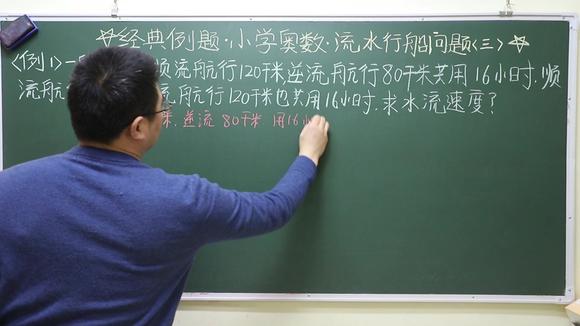 ☆经典例题·小学奥数·流水行船问题<三>☆
<例1>一 顺流航行120千米逆流航行80千米共用16小时.顺
流航 流航行120千米也共用16小时.求水流速度?
米.逆流80千米 用16小